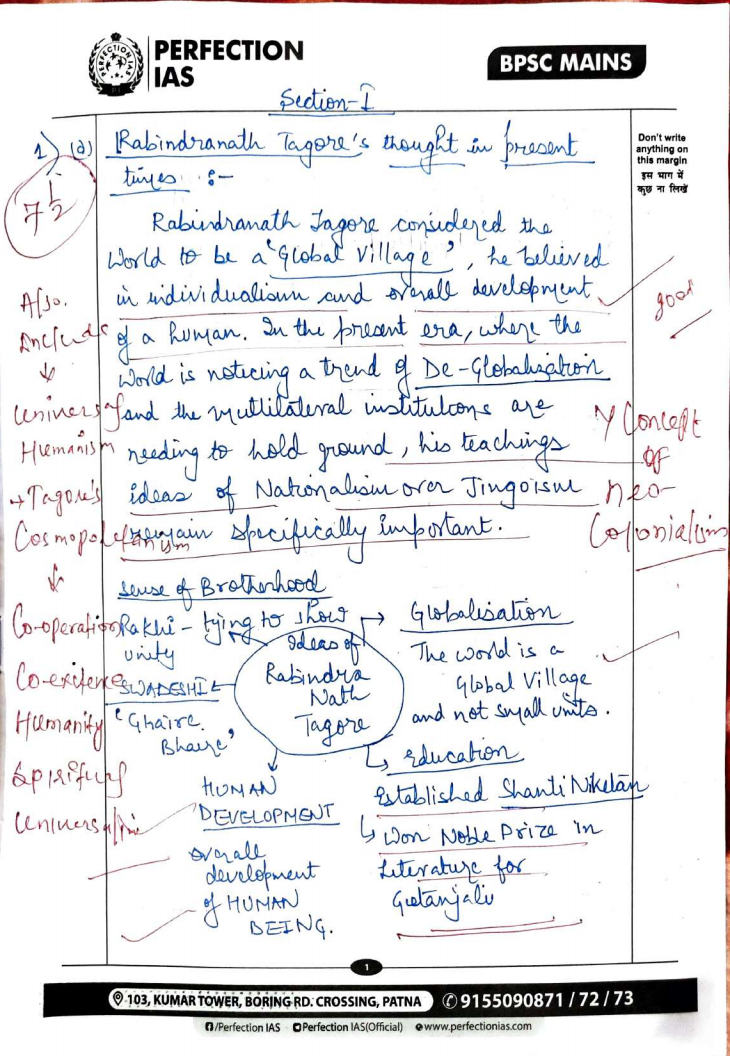 PERFECTION
IAS
BPSC MAINS
Section-I
Don't write
anything on
this margin
इस भाग में
कुछ ना लिखें
1) (a) Rabindranath Tagore's thought in present
times :-
7 1/2
Rabindranath Tagore considered the
World to be a 'Global Village', he believed
in individualism and overall development
of a human. In the present era, where the
World is noticing a trend of De-Globalization
and the multilateral institutions are
needing to hold ground, his teachings
ideas of Nationalism over Jingoism
remain specifically important.
good
Y Concept
of
neo-
Colonialism
Also.
Include
↓
Universal
Humanism
→ Tagore's
Cosmopoletanism
↓
Co-operation
Co-existence
Humanity
Spiritual
Universalism
Sense of Brotherhood
Rakhi - tying to show
unity
SWADESHI
'Ghaire
Bhaire'
Ideas of
Rabindra
Nath
Tagore
Globalisation
The world is a
Global Village
and not small units.
Education
Established Shanti Niketan
↳ Won Noble Prize in
Literature for
Geetanjali
HUMAN
DEVELOPMENT
overall
development
of HUMAN
BEING.
1
103, KUMAR TOWER, BORING RD. CROSSING, PATNA
9155090871 / 72 / 73
/Perfection IAS
Perfection IAS(Official)
www.perfectionias.com